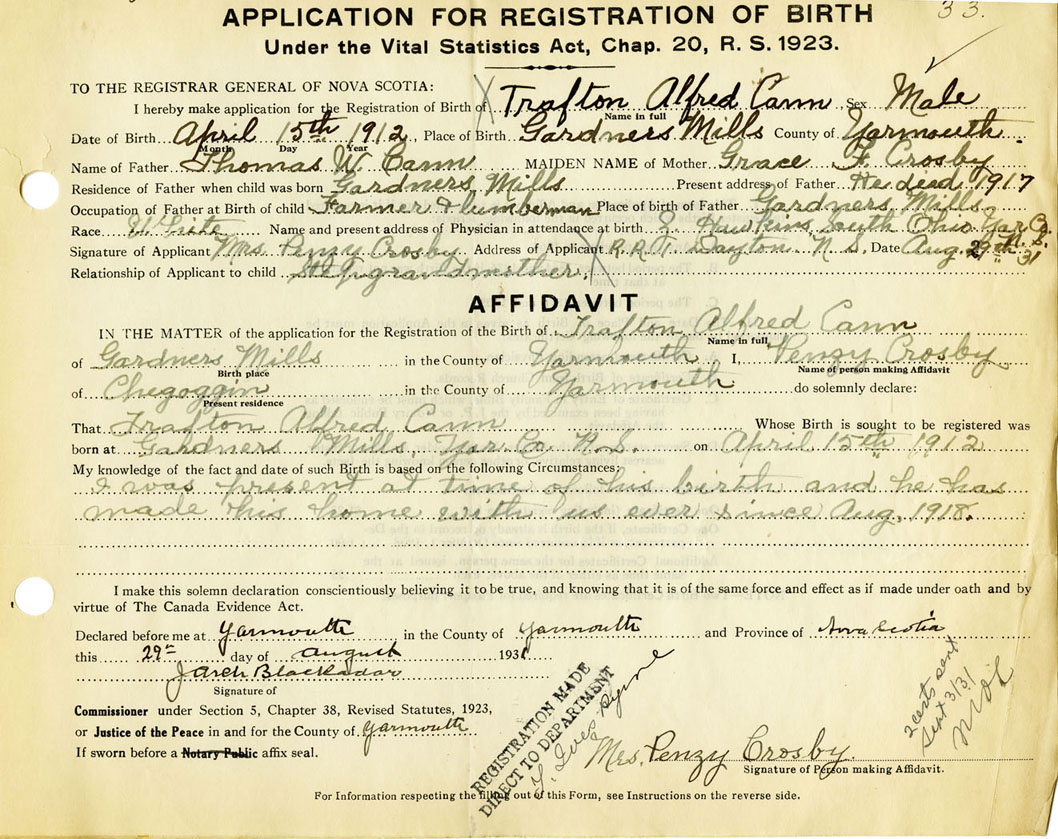 33.
APPLICATION FOR REGISTRATION OF BIRTH
Under the Vital Statistics Act, Chap. 20, R. S. 1923.
TO THE REGISTRAR GENERAL OF NOVA SCOTIA:
I hereby make application for the Registration of Birth of Trafton Alfred Cann, Sex Male
Name in full
Date of Birth April 15th 1912, Place of Birth Gardners Mills County of Yarmouth
Month Day Year
Name of Father Thomas W. Cann MAIDEN NAME of Mother Grace F. Crosby
Residence of Father when child was born Gardners Mills Present address of Father He died 1917
Occupation of Father at Birth of child Farmer & lumberman Place of birth of Father Gardners Mills
Race White Name and present address of Physician in attendance at birth Hawkins, South Ohio Yar Co. N. S.
Signature of Applicant Mrs. Penzy Crosby Address of Applicant R.R. Dayton N. S. Date Aug. 29th 31
Relationship of Applicant to child grandmother.
AFFIDAVIT
IN THE MATTER of the application for the Registration of the Birth of Trafton Alfred Cann
Name in full
of Gardners Mills in the County of Yarmouth I, Penzy Crosby
Birth place Name of person making Affidavit
of Chegoggin in the County of Yarmouth do solemnly declare:
Present residence
That Trafton Alfred Cann Whose Birth is sought to be registered was
born at Gardners Mills, Yar. Co. N.S. on April 15th 1912
My knowledge of the fact and date of such Birth is based on the following Circumstances;
I was present at time of his birth and he has
made his home with us ever since Aug. 1918.
I make this solemn declaration conscientiously believing it to be true, and knowing that it is of the same force and effect as if made under oath and by
virtue of The Canada Evidence Act.
Declared before me at Yarmouth in the County of Yarmouth and Province of Nova Scotia
this 29th day of August 1931
Blackadar
Signature of
Commissioner under Section 5, Chapter 38, Revised Statutes, 1923,
or Justice of the Peace in and for the County of Yarmouth
If sworn before a Notary Public affix seal.
REGISTRATION MADE
DIRECT TO DEPARTMENT
2 certs sent
Sept 3/31
Mrs. Penzy Crosby
Signature of Person making Affidavit.
For Information respecting the filling out of this Form, see Instructions on the reverse side.